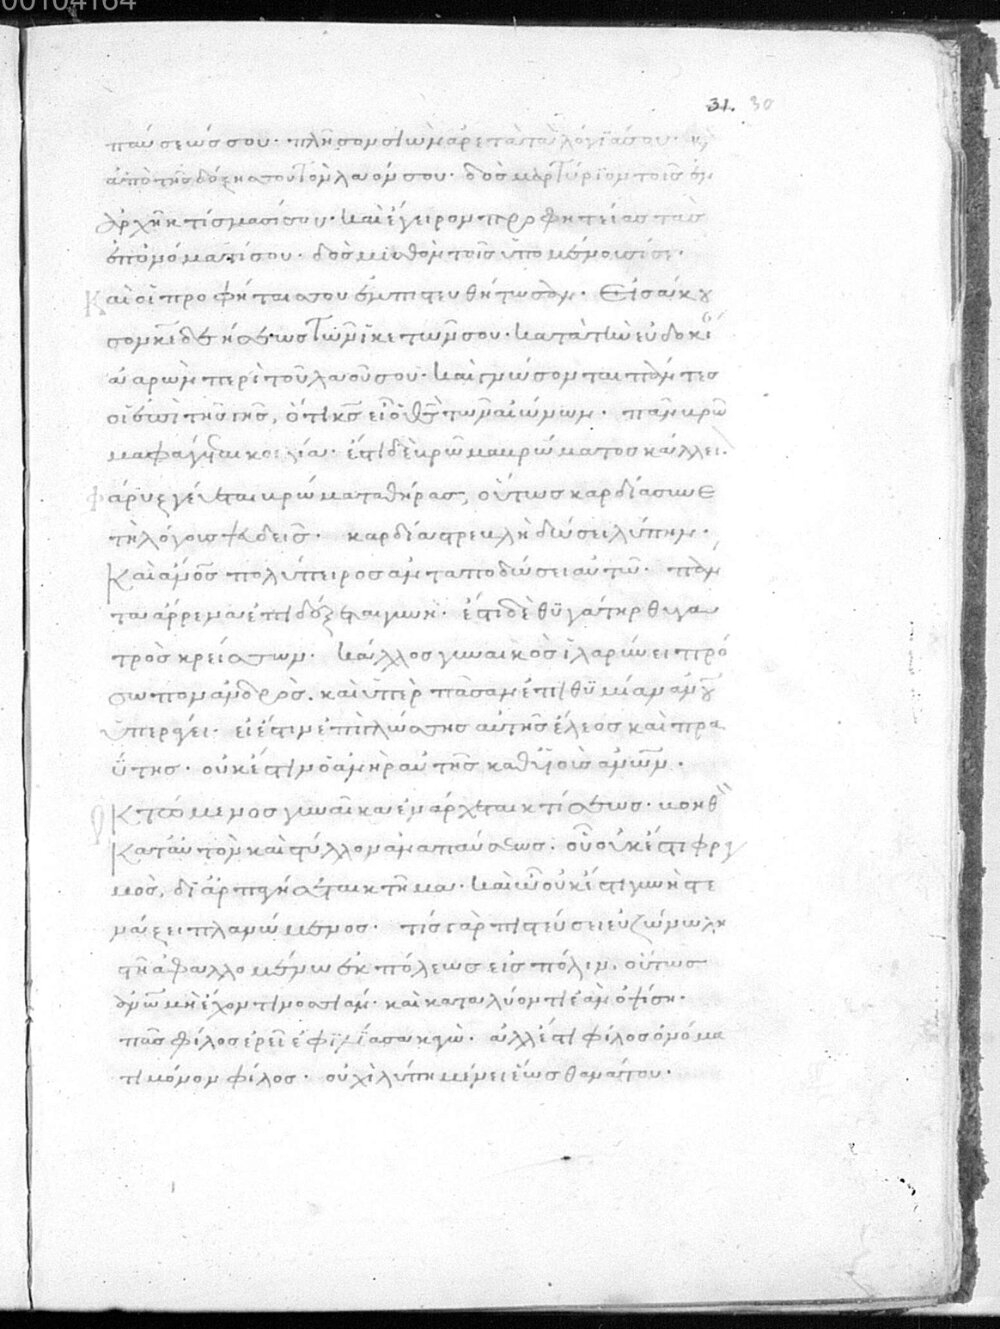 00104164
31. 30
παύσεώς σου· πλῆσον σιὼν ἀρεταὶ τὰ λόγιά σου· κ(αὶ)
ἀπὸ τῆς δόξης σου τὸν λαόν σου· δὸς μαρτύριον τοῖς ἐν
ἀρχῆ κτίσμασί σου· καὶ ἔγειρον προφητείας τὰς
ἐπ' ὀνόματί σου· δὸς μισθὸν τοῖς ὑπομένουσί σε·
Καὶ οἱ προφῆταί σου ἐμπιστευθήτωσαν· Εἰσάκου
σον κ(ύρι)ε δεήσεως τῶν ἱκετῶν σου· κατὰ τὴν εὐδοκί
ἀαρὼν περὶ τοῦ λαοῦ σου· καὶ γνώσονται πάντες
οἱ ἐπὶ τῆς γῆς, ὅτι κ(ύριο)ς εἶ ὁ θ(εὸ)ς τῶν αἰώνων· πᾶν βρῶ
μα φάγεται κοιλία· ἔστι δὲ βρῶμα βρώματος κάλλει·
Φάρυγξ γεύεται βρώματα θήρας, οὕτως καρδία συνε
τὴ λόγους ψευδεῖς· καρδία στρεβλὴ δώσει λύπην·
Καὶ ἀν(θρωπ)ος πολύπειρος ἀνταποδώσει αὐτῶ· πάν
τα ἄρρενα ἐπιδέξεται γυνή· ἔστι δὲ θυγάτηρ θυγα
τρὸς κρείσσων· κάλλος γυναικὸς ἱλαρύνει πρό
σωπον ἀνδρὸς. καὶ ὑπὲρ πᾶσαν ἐπιθυμίαν ἀν(θρώπ)ου
ὑπεράγει· εἰ ἔστιν ἐπὶ γλώσσης αὐτῆς ἔλεος καὶ πρα
ΰτης· οὐκ ἔστιν ὁ ἀνὴρ αὐτῆς καθ' υἱοὺς ἀν(θρώπ)ων·
Ὁ Κτώμενος γυναῖκα ἐνάρχεται κτίσεως· βοηθ(ὸν)
Κατ' αὐτὸν καὶ στύλλον ἀναπαύσεως· οὗ οὐκ ἔστι φραγ
μὸς, διαρπαγήσεται κτῆμα· καὶ οὗ οὐκ ἔστι γυνὴ στε
νάξει πλανώμενος· τίς γὰρ πιστεύσει εὐζώνω λη
στῆ ἀφαλλομένω ἐκ πόλεως εἰς πόλιν. οὕτως
ἀν(θρώπ)ω μὴ ἔχοντι νοσσιάν· καὶ καταλύοντι ἐὰν ὀψίση·
πᾶς φίλος ἐρεῖ ἐφιλίασα κἀγώ· ἀλλ' ἔστι φίλος ὀνόμα
τι μόνον φίλος· οὐχὶ λύπη μένει ἕως θανάτου·